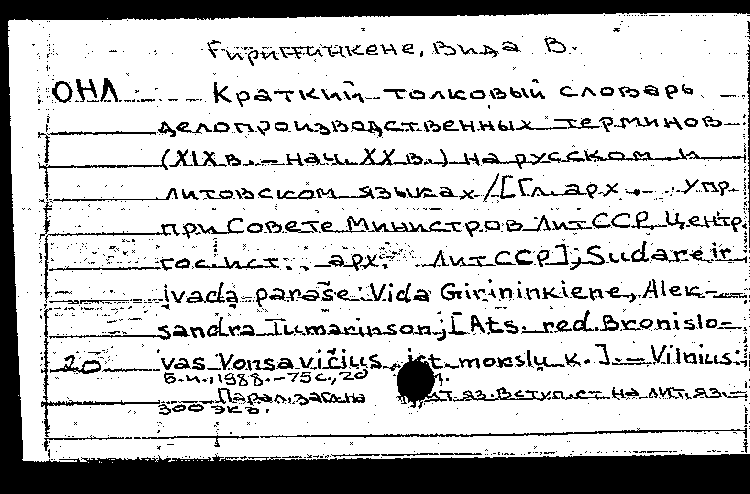 Гирининкене, Вида В.
ОНЛ Краткий толковый словарь
делопроизводственных терминов
(XIX в. - нач. XX в.) на русском и
литовском языках / [Гл. арх. упр.
при Совете Министров ЛитССР, Центр.
гос. ист. арх. ЛитССР]; Sudarė ir
įvadą parašė: Vida Girininkienė, Alek-
sandra Tumarinson; [Ats. red. Bronislo-
20 vas Vonsavičius, ist. mokslų k.]. - Vilnius:
Б.и., 1988. - 75 с., 20
Парал. загл. на лит. яз. Вступ. ст. на лит. яз. -
300 экз.